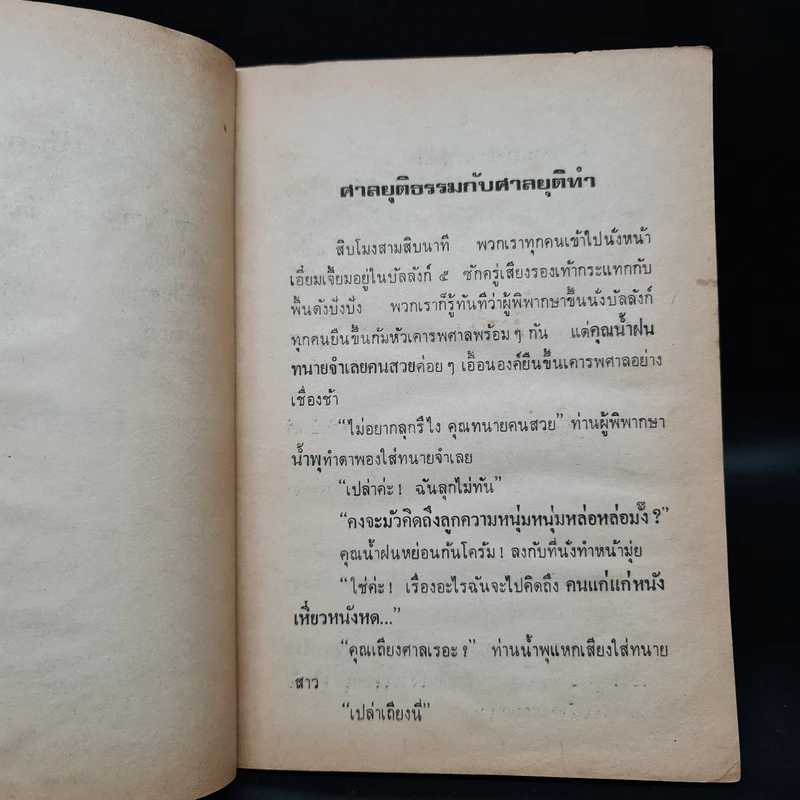 ศาลยุติธรรมกับศาลยุติทำ
สิบโมงสามสิบนาที พวกเราทุกคนเข้าไปนั่งหน้า
เอี๋ยมเจี้ยมอยู่ในบัลลังก์ ๕ ซักครู่เสียงรองเท้ากระแทกกับ
พื้นดังปังปัง พวกเราก็รู้ทันทีว่าผู้พิพากษาขึ้นนั่งบัลลังก์
ทุกคนยืนขึ้นก้มหัวเคารพศาลพร้อมๆ กัน แต่คุณน้ำฝน
ทนายจำเลยคนสวยค่อยๆ เอื้อนองค์ยืนขึ้นเคารพศาลอย่าง
เชื่องช้า
“ไม่อยากลุกรึไง คุณทนายคนสวย” ท่านผู้พิพากษา
น้ำพุทำตาพองใส่ทนายจำเลย
“เปล่าค่ะ! ฉันลุกไม่ทัน”
“คงจะมัวคิดถึงลูกความหนุ่มหนุ่มหล่อหล่อมั้ง?”
คุณน้ำฝนหย่อนก้นโครัม! ลงกับที่นั่งทำหน้ามุ่ย
“ใช่ค่ะ! เรื่องอะไรฉันจะไปคิดถึง คนแก่แก่หนัง
เหี่ยวหนังหด...”
“คุณเถียงศาลเรอะ?” ท่านน้ำพุแหกเสียงใส่ทนาย
สาว
“เปล่าเถียงนี่”